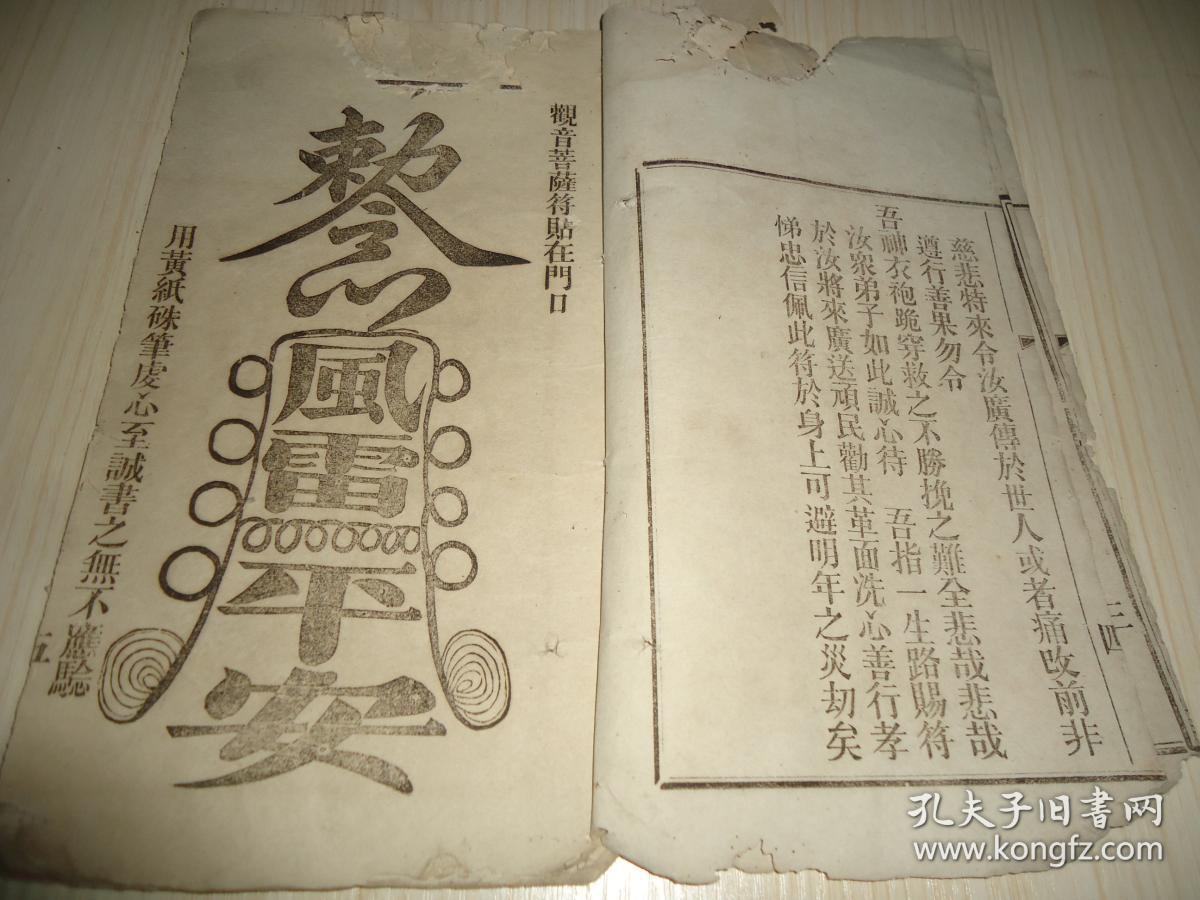 慈悲特來令汝廣傳於世人或者痛改前非
遵行善果勿令
吾神衣袍跪穿救之不勝挽之難全悲哉悲哉
汝眾弟子如此誠心待 吾指一生路賜符
於汝將來廣送頑民勸其革面洗心善行孝
悌忠信佩此符於身上可避明年之災劫矣
三
四
觀音菩薩符貼在門口
敕令
風雷平安
用黃紙硃筆虔心至誠書之無不應驗
五
孔夫子旧书网
www.kongfz.com